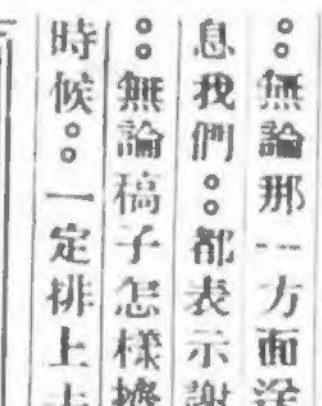 ：無論那一方面送
息我們：都表示謝
：無論稿子怎樣擠
時候：一定排上去